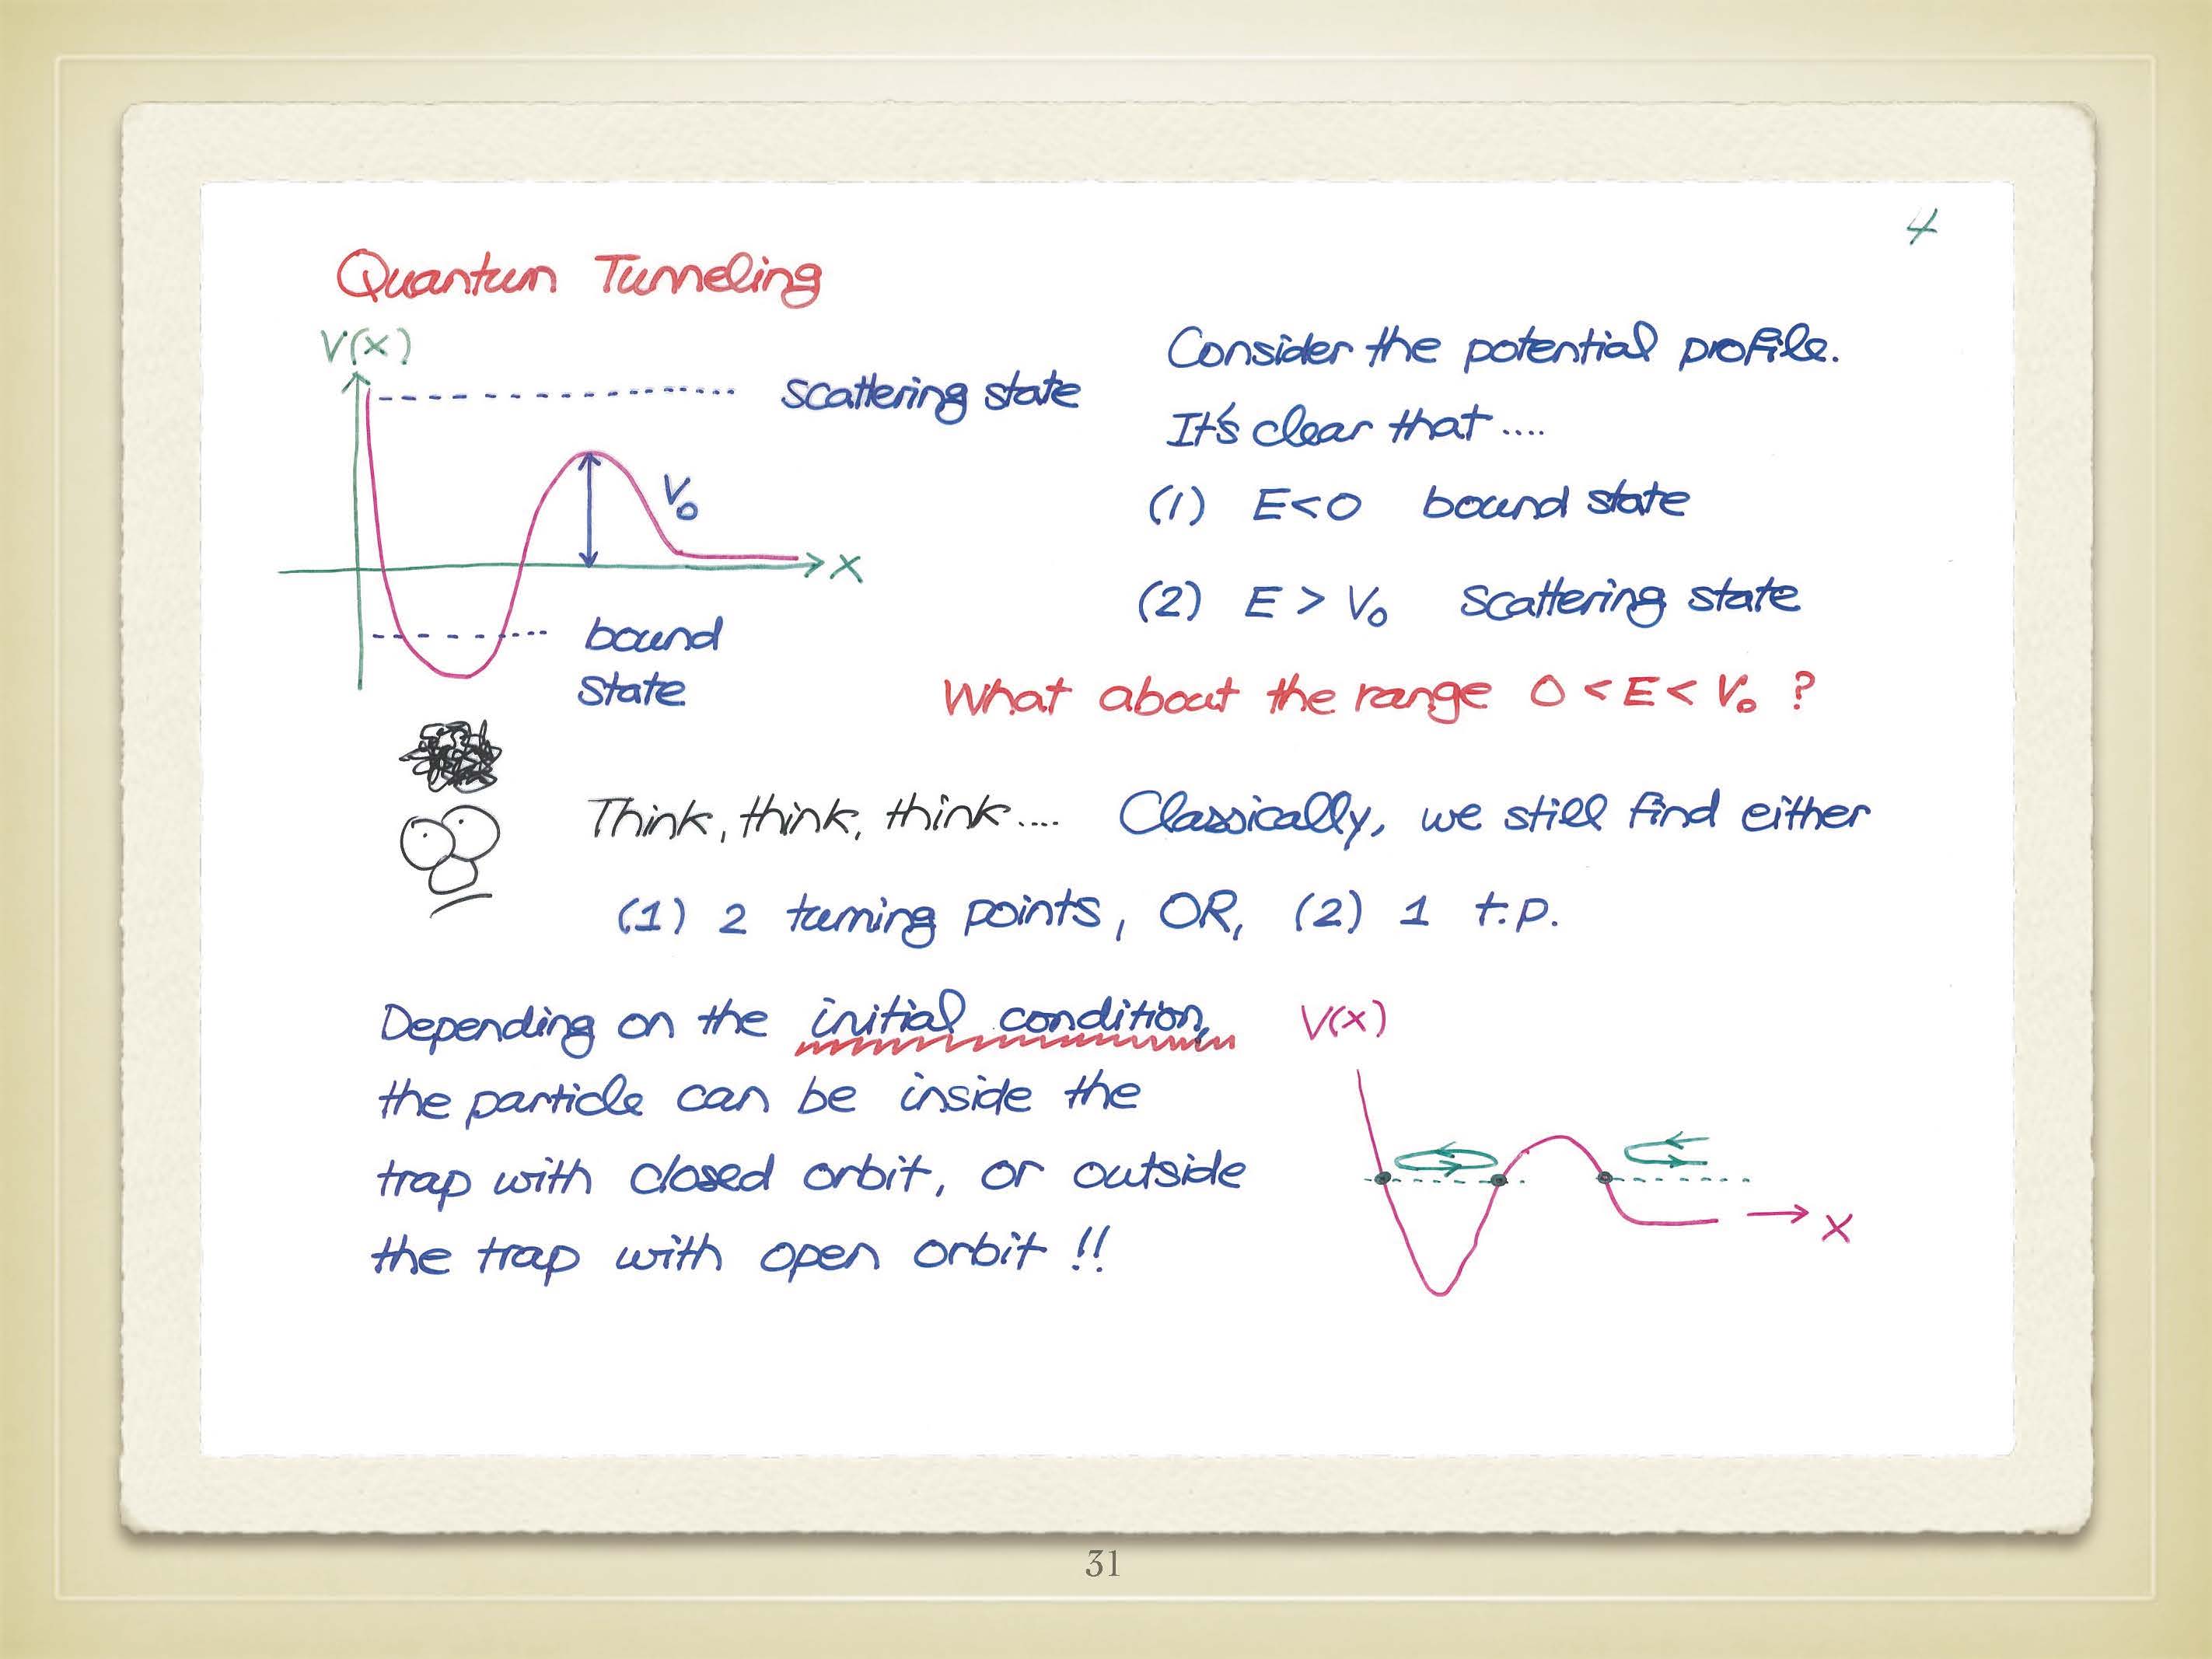 4
Quantum Tunneling
V(x)
scattering state
V₀
x
bound
state
Consider the potential profile.
It's clear that ....
(1) E<0 bound state
(2) E > V₀ scattering state
What about the range 0 < E < V₀ ?
Think, think, think.... Classically, we still find either
(1) 2 turning points, OR, (2) 1 t.p.
Depending on the initial condition,
the particle can be inside the
trap with closed orbit, or outside
the trap with open orbit !!
V(x)
x
31